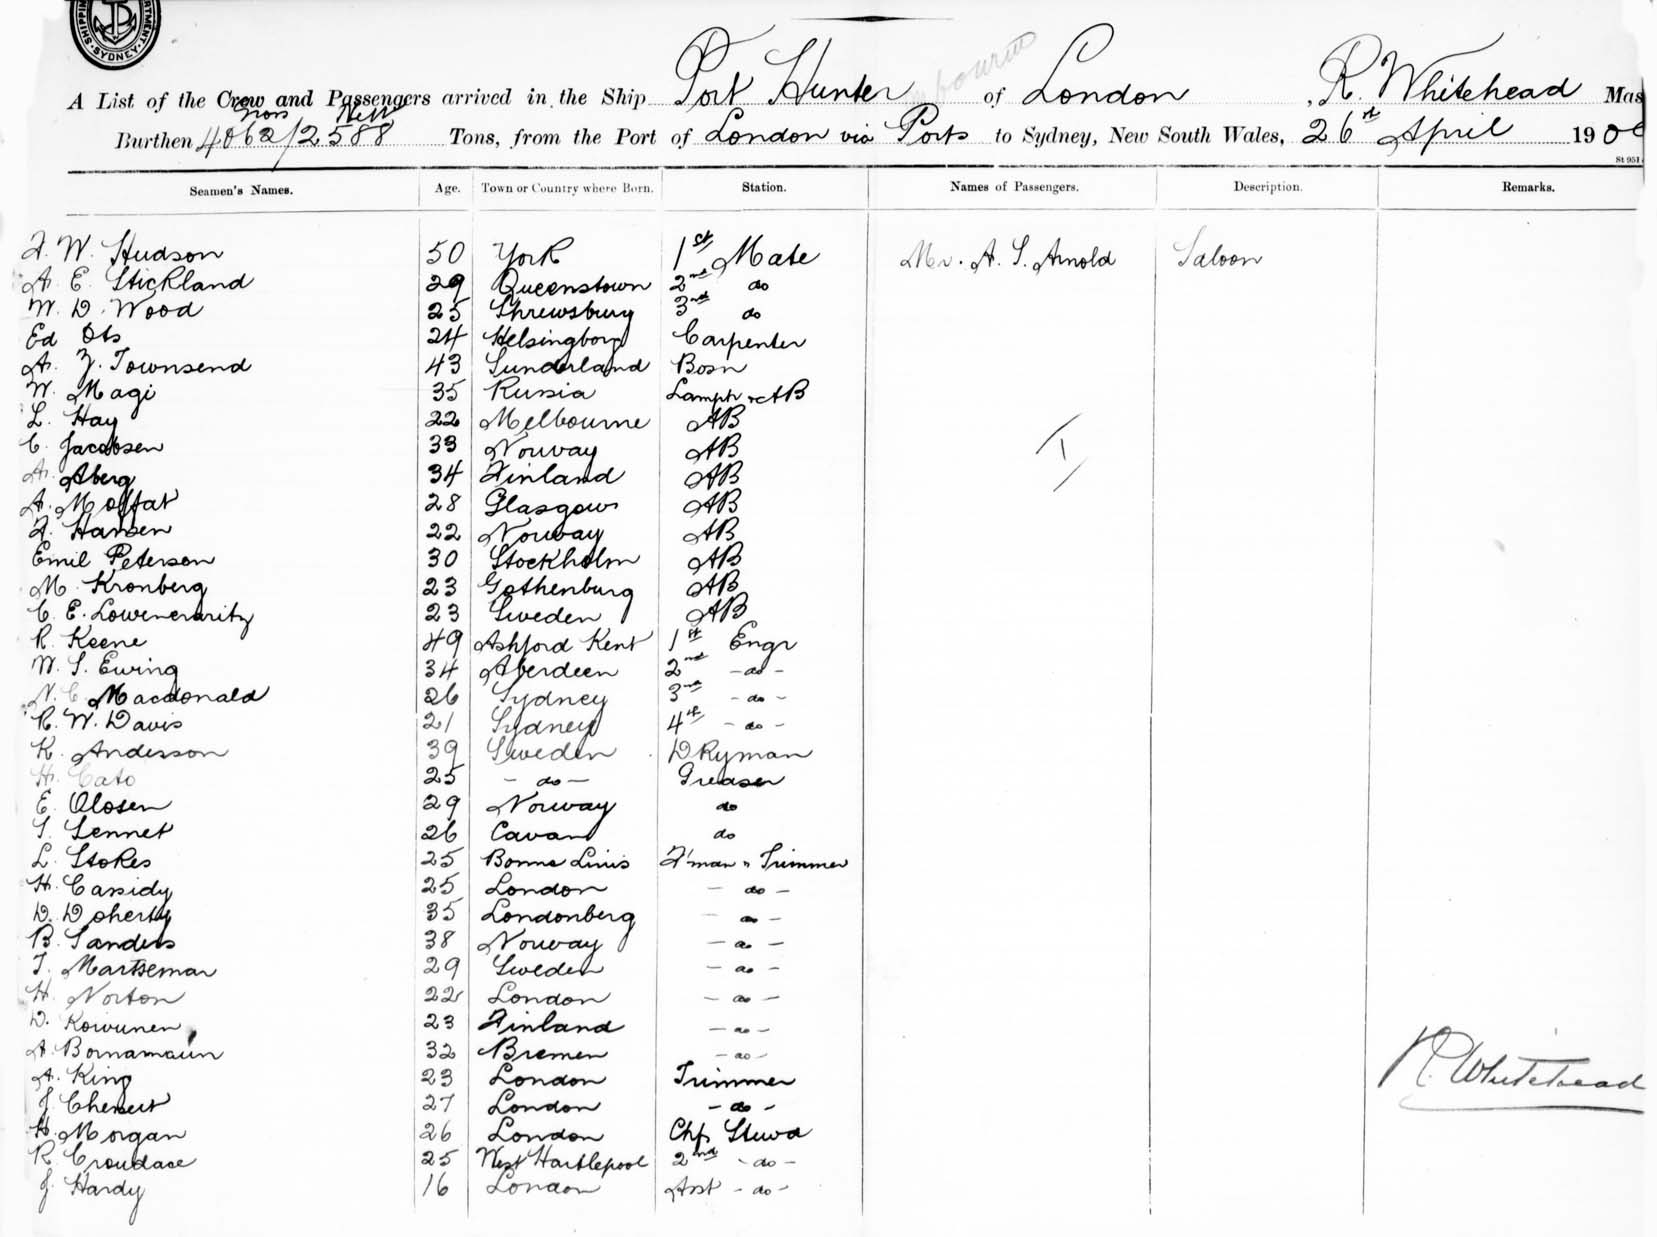 SHIPPING DEPARTMENT. SYDNEY.
A List of the Crew and Passengers arrived in the Ship Port Hunter of London, R. Whitehead Mas
Gross Nett
Burthen 4062/2588 Tons, from the Port of London via Ports to Sydney, New South Wales, 26th April 190
St 951
Seamen's Names. Age. Town or Country where Born. Station. Names of Passengers. Description. Remarks.
F. W. Hudson 50 York 1st Mate Mr. A. S. Arnold Saloon
A. E. Stickland 29 Queenstown 2nd do
W. D. Wood 25 Shrewsbury 3rd do
Ed Ots 24 Helsingborg Carpenter
A. Z. Townsend 43 Sunderland Bosn
W. Magi 35 Russia Lamptr & AB
L. Hay 22 Melbourne AB
C. Jacobsen 33 Norway AB
A. Aberg 34 Finland AB
A. Moffat 28 Glasgow AB
F. Hansen 22 Norway AB
Emil Peterson 30 Stockholm AB
M. Kronberg 23 Gothenburg AB
C. E. 23 Sweden AB
R. Keene 49 Ashford Kent 1st Engr
W. S. Ewing 34 Aberdeen 2nd - do -
N. C. Macdonald 26 Sydney 3rd - do -
R. W. Davis 21 Sydney 4th - do -
K. Andersson 39 Sweden DKyman
H. Cato 25 - do - Greaser
E. Olosen 29 Norway do
S. Sennet 26 Cavan do
L. Stokes 25 F'man " Trimmer
H. Cassidy 25 London - do -
D. Doherty 35 Londonberg - do -
B. Sanders 38 Norway - do -
T. Martseman 29 Sweden - do -
H. Norton 22 London - do -
D. Kowunen 23 Finland - do -
A. Bornamaün 32 Bremen - do -
A. King 23 London Trimmer
J. 27 London - do -
H. Morgan 26 London Chf Stewd
R. Croudace 25 West Hartlepool 2nd - do -
J. Hardy 16 London Asst - do -
R. Whitehead